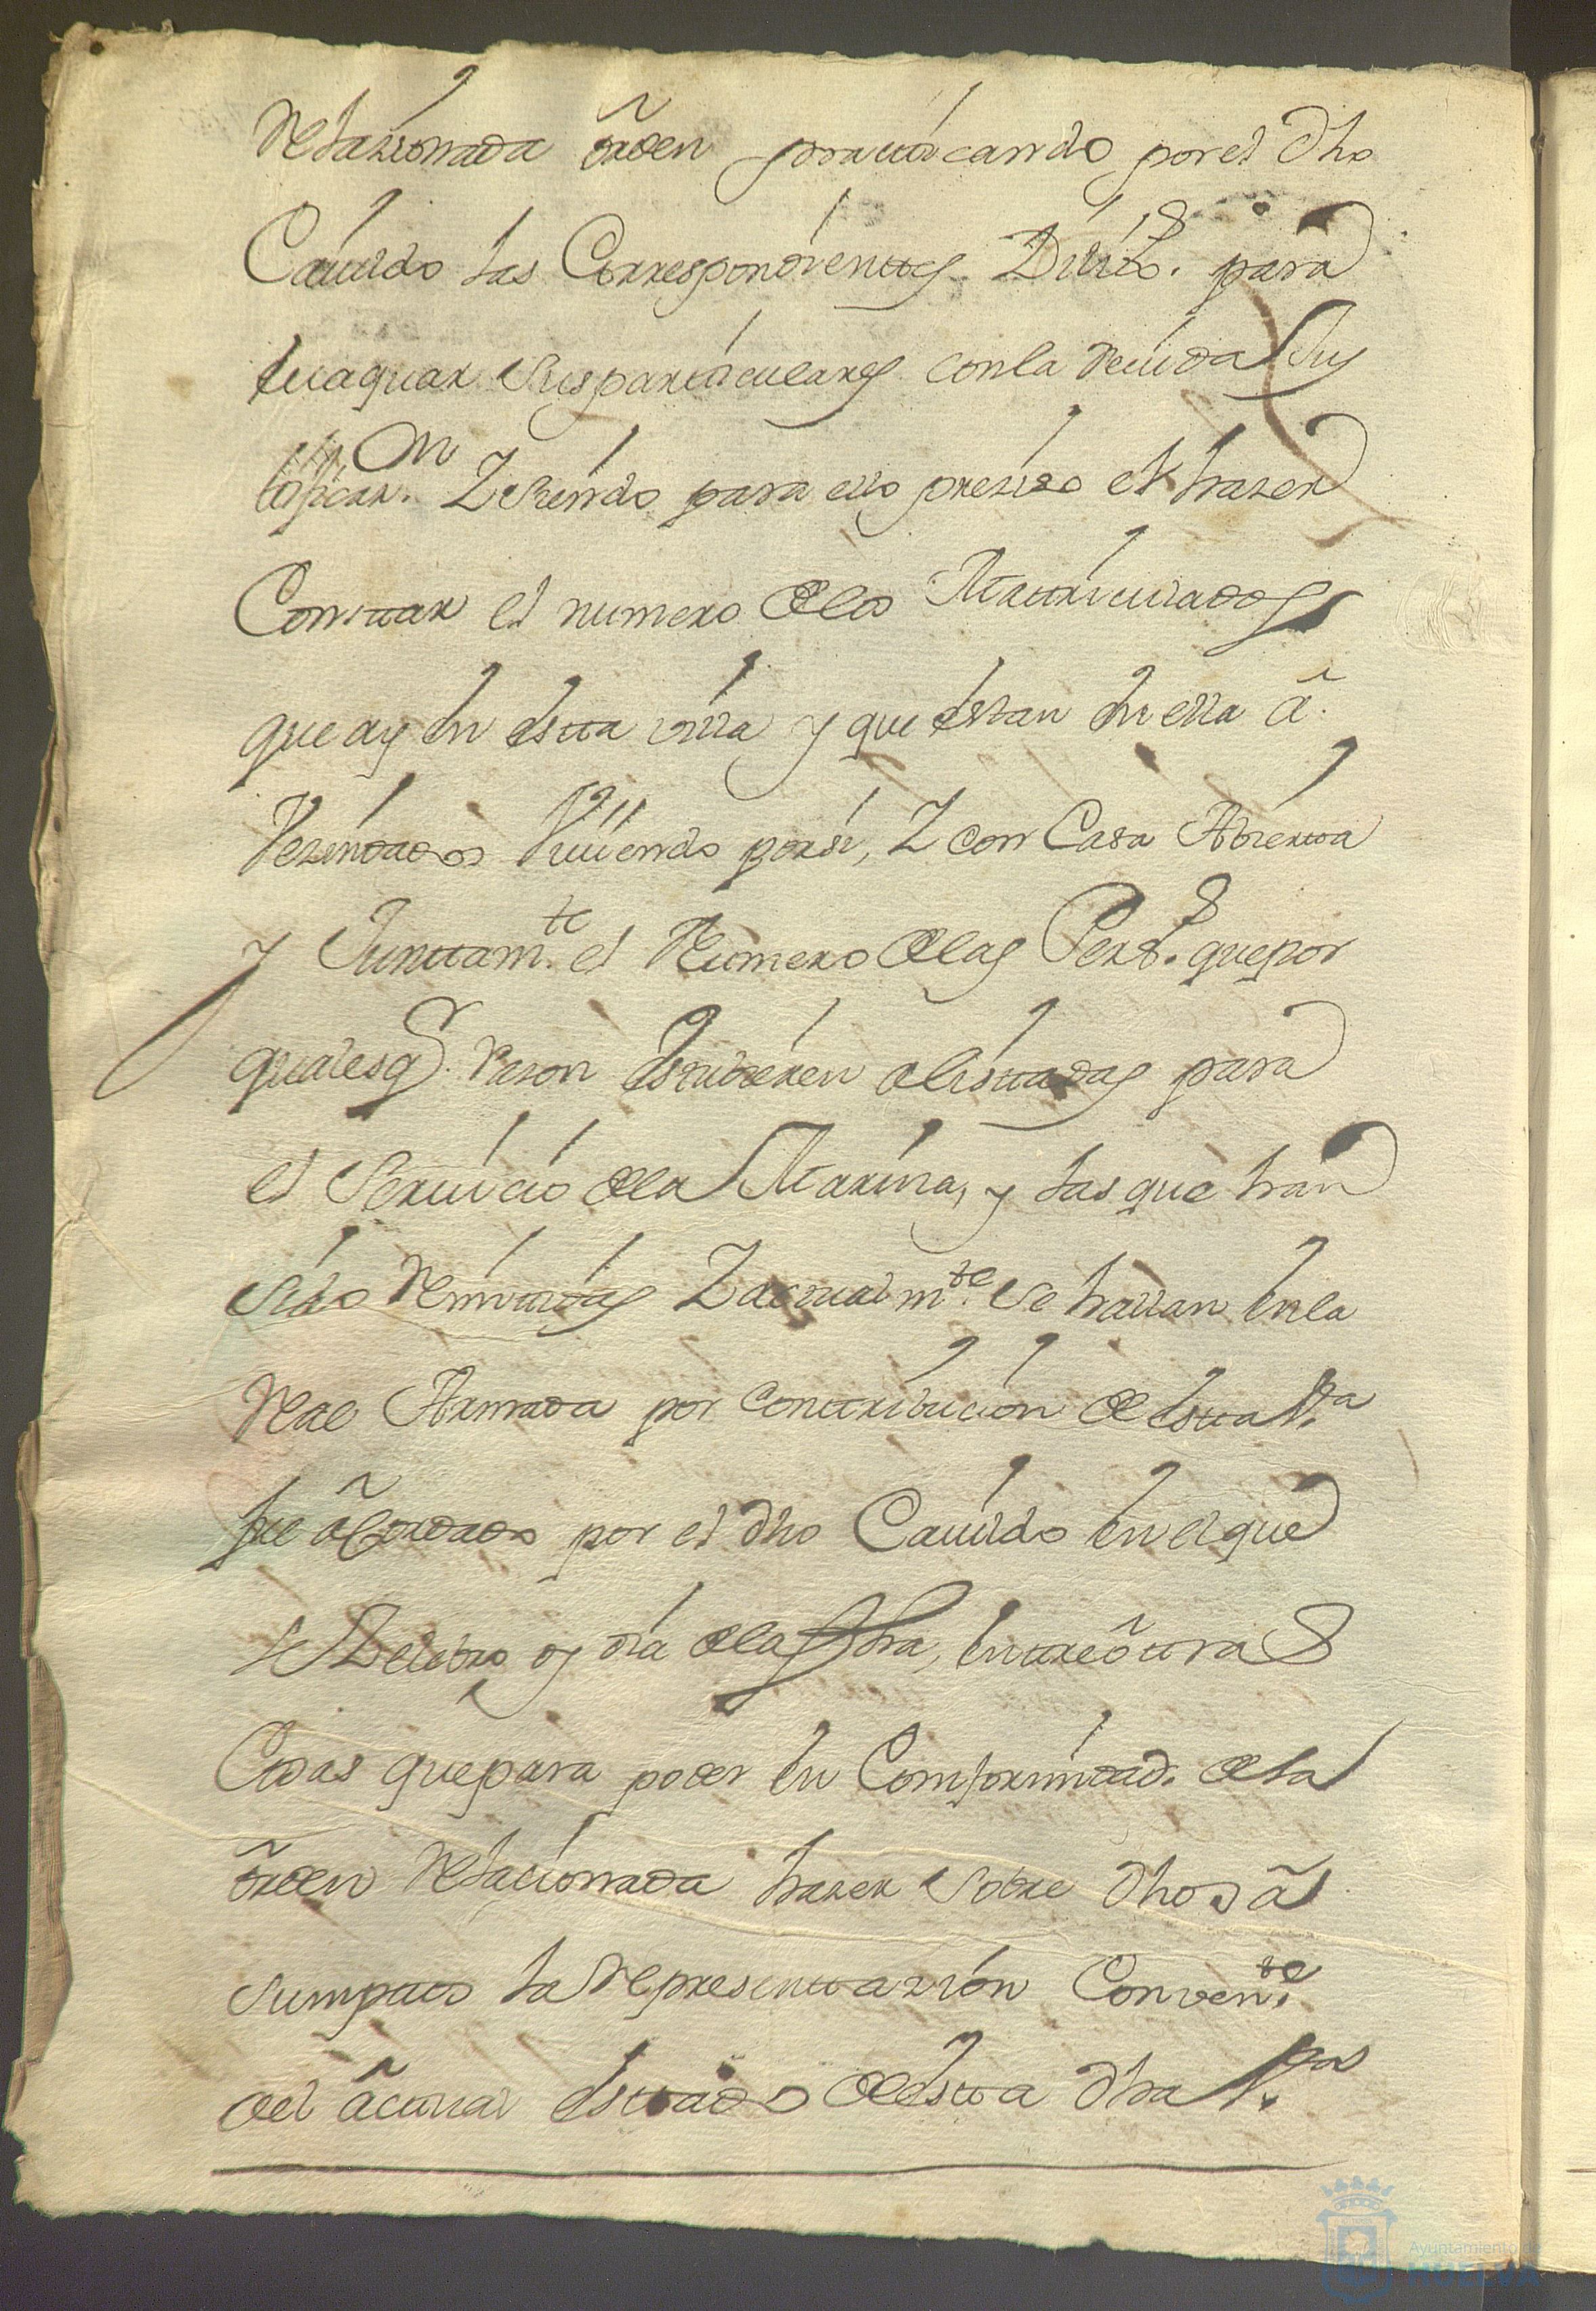 Relazionada õrden practicando por el dho
Cavildo las Correspondientes Dilixs. para
evaquar sus particulares con la devida Jus
tificazn. Z siendo para ello preziso el hazer
Constar el numero de los Matriculados
que ay en esta villa y que estan en ella ã
Vezindados Viviendo por si, Z con Casa Abierta
y Juntamte. el Numero de las Perss. que por
qualesqra. razon estubieren alistadas para
el Servicio de la Marina, y las que han
sido Remitidas Z actualmte. se hallan en la
Real Armada por contribucion de esta Va.
fue ãcordado por el dho Cavildo en el que
se Zelebro oy dia de la fha, entre õtras
Cosas que para poder en Conformidad. de la
õrden Relacionada hazer sobre dhos ã
sumptos la Representazion Convente.
del ãctual estado de esta dha Va.
Ayuntamiento de
HUELVA